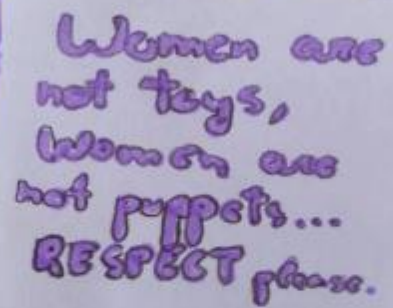 Women are
not toys,
Women are
not puppets...
RESPECT please.